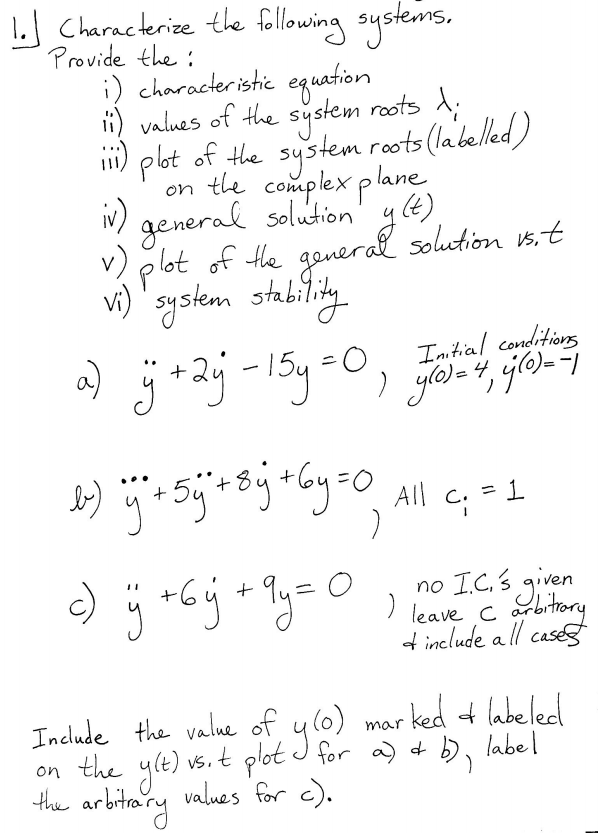 1. Characterize the following systems.
Provide the :
i) characteristic equation
ii) values of the system roots λᵢ
iii) plot of the system roots (labelled)
on the complex plane
iv) general solution y(t)
v) plot of the general solution vs. t
vi) system stability
a) ÿ + 2ẏ - 15y = 0 , Initial conditions
y(0) = 4, ẏ(0) = -1
b) y⃛ + 5ÿ + 8ẏ + 6y = 0 , All cᵢ = 1
c) ÿ + 6ẏ + 9y = 0 , no I.C.'s given
leave c arbitrary
& include all cases
Include the value of y(0) marked & labeled
on the y(t) vs. t plot for a) & b), label
the arbitrary values for c).